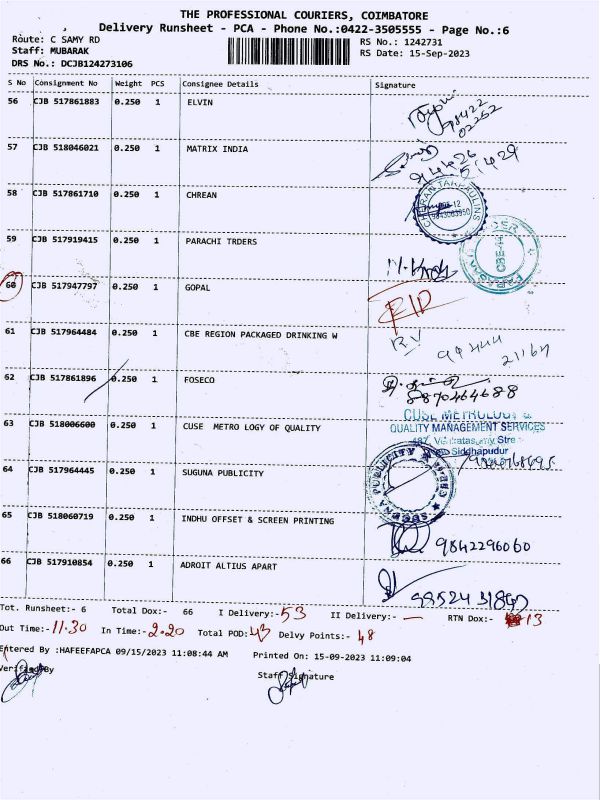 THE PROFESSIONAL COURIERS, COIMBATORE
Delivery Runsheet - PCA - Phone No.:0422-3505555 - Page No.:6
Route: C SAMY RD
RS No.: 1242731
Staff: MUBARAK
RS Date: 15-Sep-2023
DRS No.: DCJB124273106
S No Consignment No Weight PCS Consignee Details Signature
56 CJB 517861883 0.250 1 ELVIN
98422
02262
57 CJB 518046021 0.250 1 MATRIX INDIA
94426
51429
58 CJB 517861710 0.250 1 CHREAN
CHERAN TARPAULINS
9843063950
59 CJB 517919415 0.250 1 PARACHI TRDERS
CBE-44
60 CJB 517947797 0.250 1 GOPAL
RTD
61 CJB 517964484 0.250 1 CBE REGION PACKAGED DRINKING W
RV
99444
21164
62 CJB 517861896 0.250 1 FOSECO
8870464688
63 CJB 518006600 0.250 1 CUSE METRO LOGY OF QUALITY
CUSE METROLOGY &
QUALITY MANAGEMENT SERVICES
Siddhapudur
64 CJB 517964445 0.250 1 SUGUNA PUBLICITY
PUBLICITY
65 CJB 518060719 0.250 1 INDHU OFFSET & SCREEN PRINTING
9842296060
66 CJB 517910854 0.250 1 ADROIT ALTIUS APART
Tot. Runsheet:- 6 Total Dox:- 66 I Delivery:- 53 II Delivery:- — RTN Dox:- 13
Out Time:- 11.30 In Time:- 2.20 Total POD: 43 Delvy Points:- 48
Entered By :HAFEEFAPCA 09/15/2023 11:08:44 AM Printed On: 15-09-2023 11:09:04
Verified By
Staff Signature